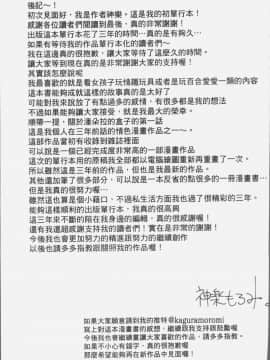 後記～！
初次見面好，我是作者神樂。這是我的初單行本！
感謝各位讀者們閱讀到最後，真的非常謝謝！
出版這本單行本花了三年的時間…真的是有夠久…
如果有等待我的作品單行本化的讀者們～
我在這邊真的很抱歉，讓大家等待了這麼久的時間。
讓大家等到現在真的是非常謝謝大家的支持喔！
其實該怎麼說呢
我最喜歡的就是看女孩子玩情趣玩具或者是玩百合愛愛一類的內容
這本書能夠成就這樣的故事真的是太好了
可能對我來說放了有點過多的感情，有很多都是我的想法
不過如果能夠讓大家接受，就是我最大的榮幸。
順帶一提，關於潘朵拉的盒子的第一話
這是我個人在三年前話的情色漫畫作品之一～。
這部作品當初有收錄到雜誌裡面
可以說是一個已經完成度非常高的一部漫畫作品
這次的單行本用的原稿我全部都以電腦繪圖重新再重畫了一次。
所以雖然這是三年前的作品，但也是我最新的作品。
其他還加筆了很多部分，可以說是一本反省的點很多的一冊漫畫書…
但是我真的很努力喔…
雖然這也算是個小藉口，不過私生活方面我也過了很精彩的三年。
能夠這樣順利的出版單行本，我真的很高興
這三年來不斷的陪在我身邊的編輯，真的很感謝喔！
還有我還超感謝支持我的讀者們！實在是非常的謝謝！
今後我也會更加努力的精進跟努力的繼續創作
以後也請多多指教跟關照我的作品喔！
神楽もろみ。
如果大家願意請到我的推特@kaguramoromi
寫上對這本漫畫書的感想，繼續跟我支持跟鼓勵喔
今後我也會繼續畫讓大家喜歡的作品，請多多指教。
如果不小心有錯字，真的很抱歉喔
那麼希望能夠再在新作品中見面喔！